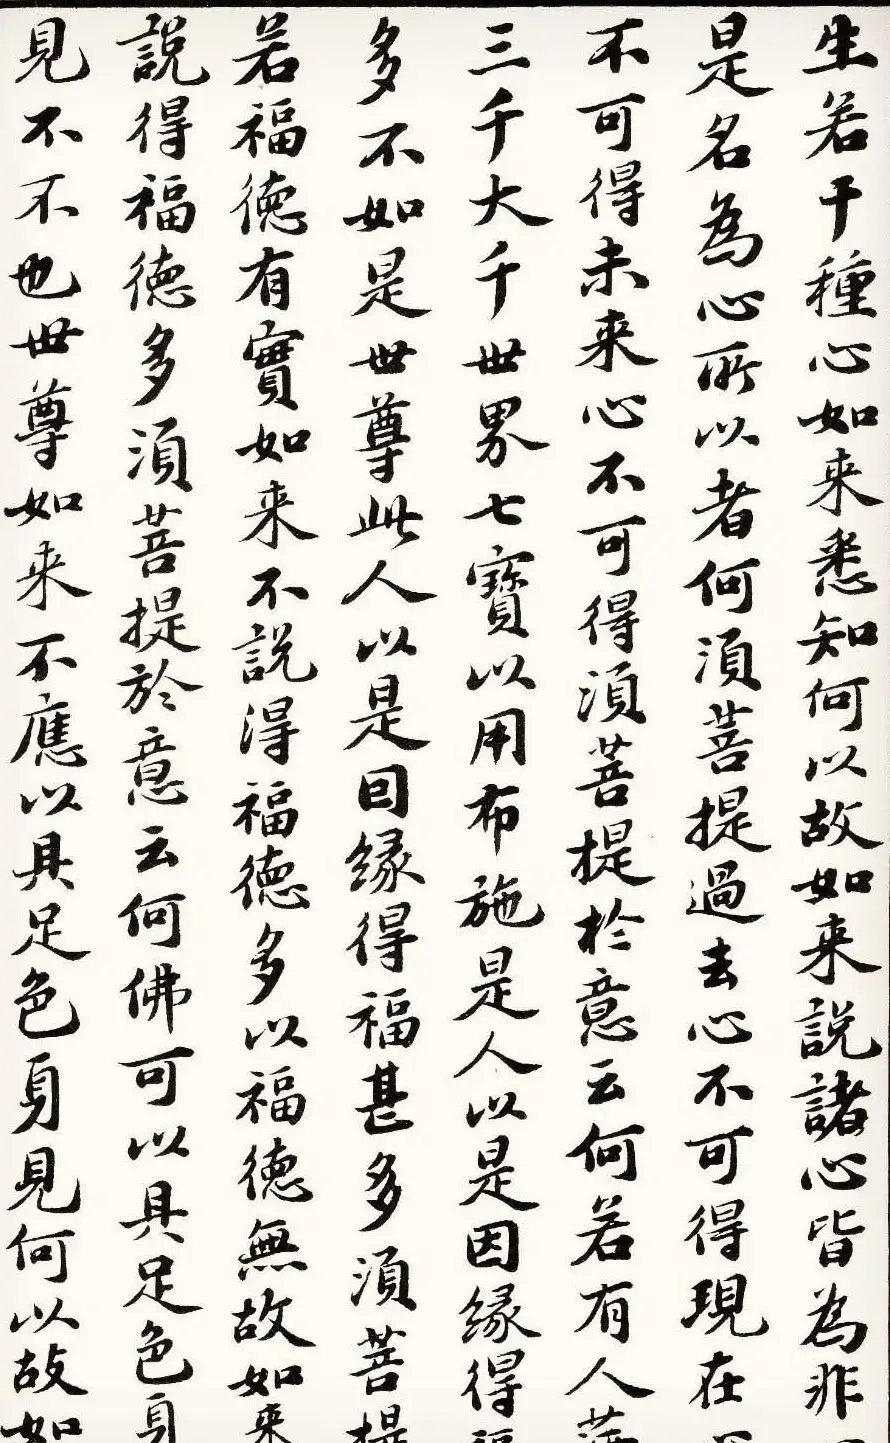 生若干種心如来悉知何以故如来說諸心皆為非
是名為心所以者何須菩提過去心不可得現在
不可得未来心不可得須菩提於意云何若有人
三千大千世界七寶以用布施是人以是因緣得
多不如是世尊此人以是因緣得福甚多須菩提
若福德有實如来不說得福德多以福德無故如来
說得福德多須菩提於意云何佛可以具足色身
見不不也世尊如来不應以具足色身見何以故如